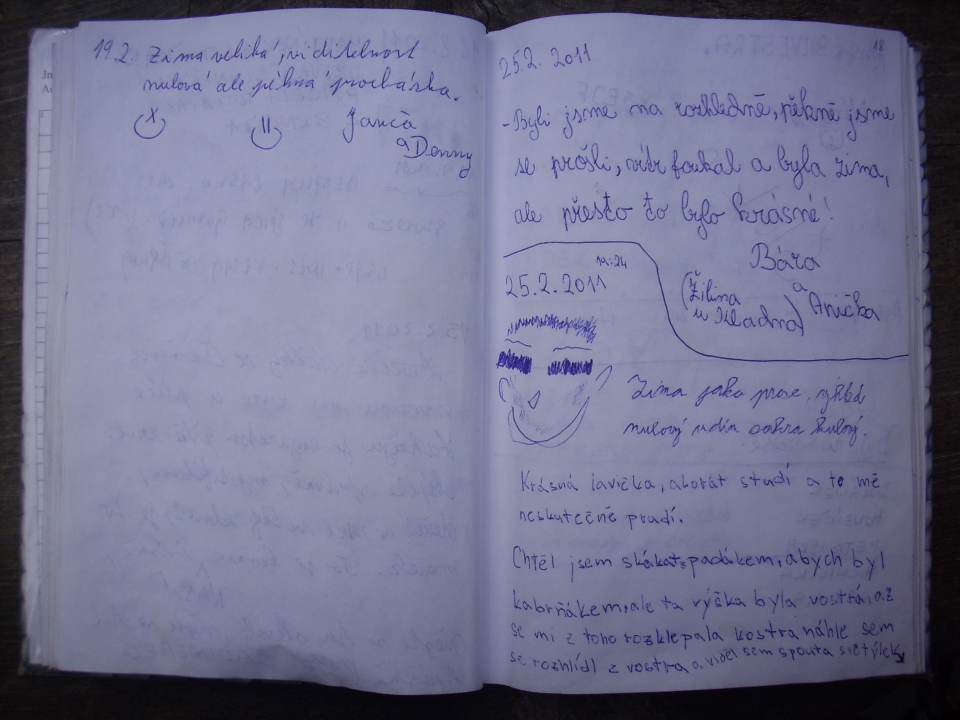 19.2. Zima veliká, viditelnost
nulová ale pěkná procházka.
Janča
a Denny
18
25.2. 2011
-Byli jsme na rozhledně, pěkně jsme
se prošli, vítr foukal a byla zima,
ale přesto to bylo krásné!
Bára
a
Anička
(Žilina
u Kladna)
19:24
25.2.2011
Zima jako prase, výhled
nulový
Krásná lavička, akorát studí a to mě
neskutečně prudí.
Chtěl jsem skákat s padákem, abych byl
kabrňákem, ale ta výška byla vostrá, až
se mi z toho rozklepala kostra náhle sem
se rozhlídl z vostra a viděl sem spousta světýlek